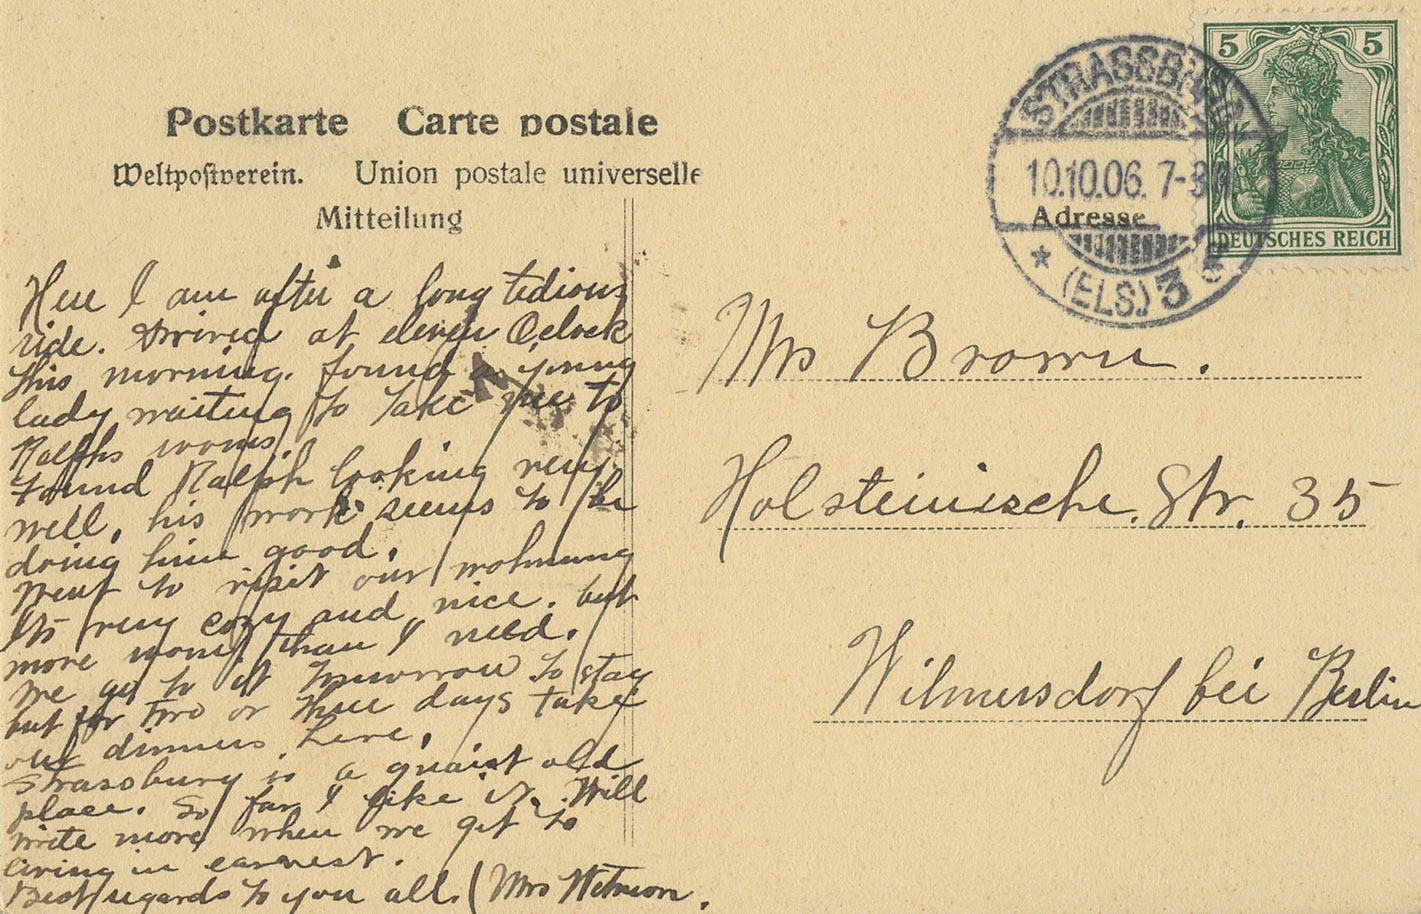 Postkarte Carte postale
Weltpostverein. Union postale universelle
Mitteilung
Here I am after a long tedious
ride. Arrived at eleven Oclock
this morning. found a young
lady waiting to take me to
Ralphs rooms.
Found Ralph looking very
well, his work seems to be
doing him good.
Went to visit our wohnung
Its very cozy and nice. but
more rooms than I need.
We go to it tomorrow to stay
but for two or three days take
our dinners here.
Strassburg is a quaint old
place. So far I like it. Will
write more when we get to
living in earnest.
Best regards to you all. (Mrs
STRASSBURG
10.10.06. 7-8
(ELS.) 3
Adresse
5 5
DEUTSCHES REICH
Mrs Brown.
Holsteinische. Str. 35
Wilmersdorf bei Berlin